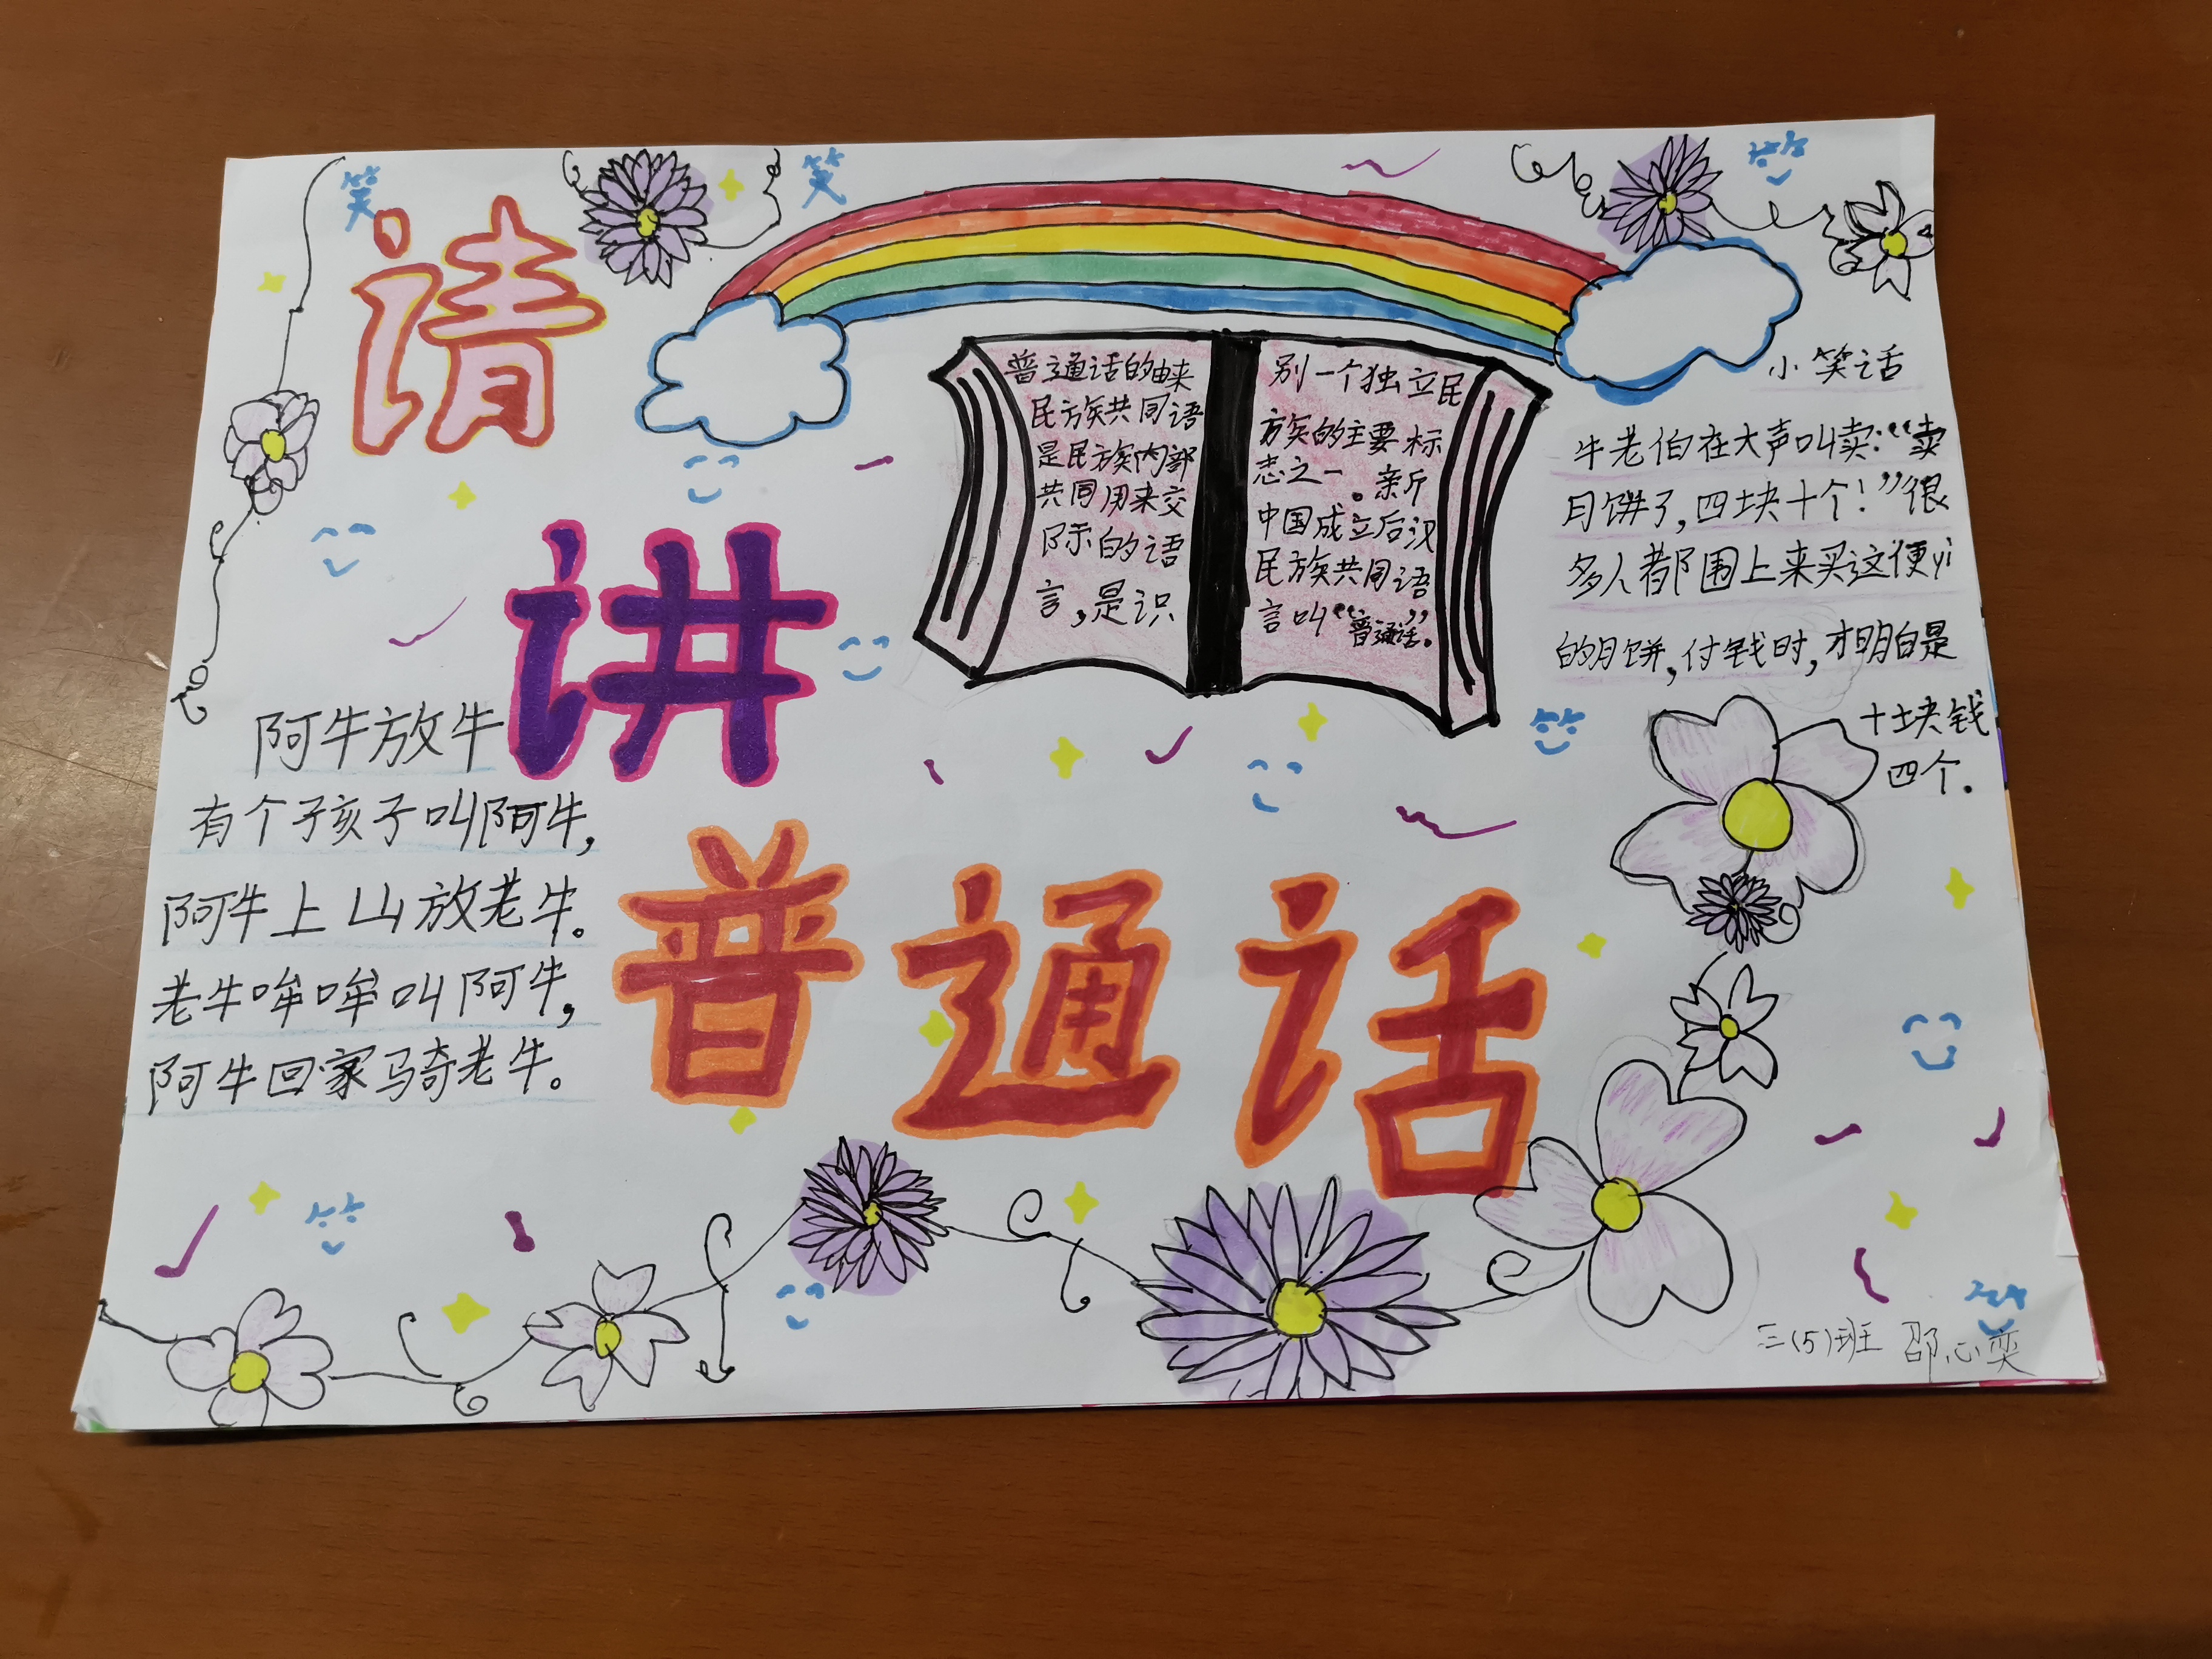 笑
笑
请
讲
普通话
普通话的由来
民族共同语
是民族内部
共同用来交
际的语
言,是识
别一个独立民
族的主要标
志之一。新
中国成立后汉
民族共同语
言叫“普通话”。
小笑话
牛老伯在大声叫卖:“卖
月饼了,四块十个!”很
多人都围上来买这便yi
的月饼,付钱时,才明白是
十块钱
四个.
阿牛放牛
有个孩子叫阿牛,
阿牛上山放老牛。
老牛哞哞叫阿牛,
阿牛回家马奇老牛。
三(5)班 邵心奕